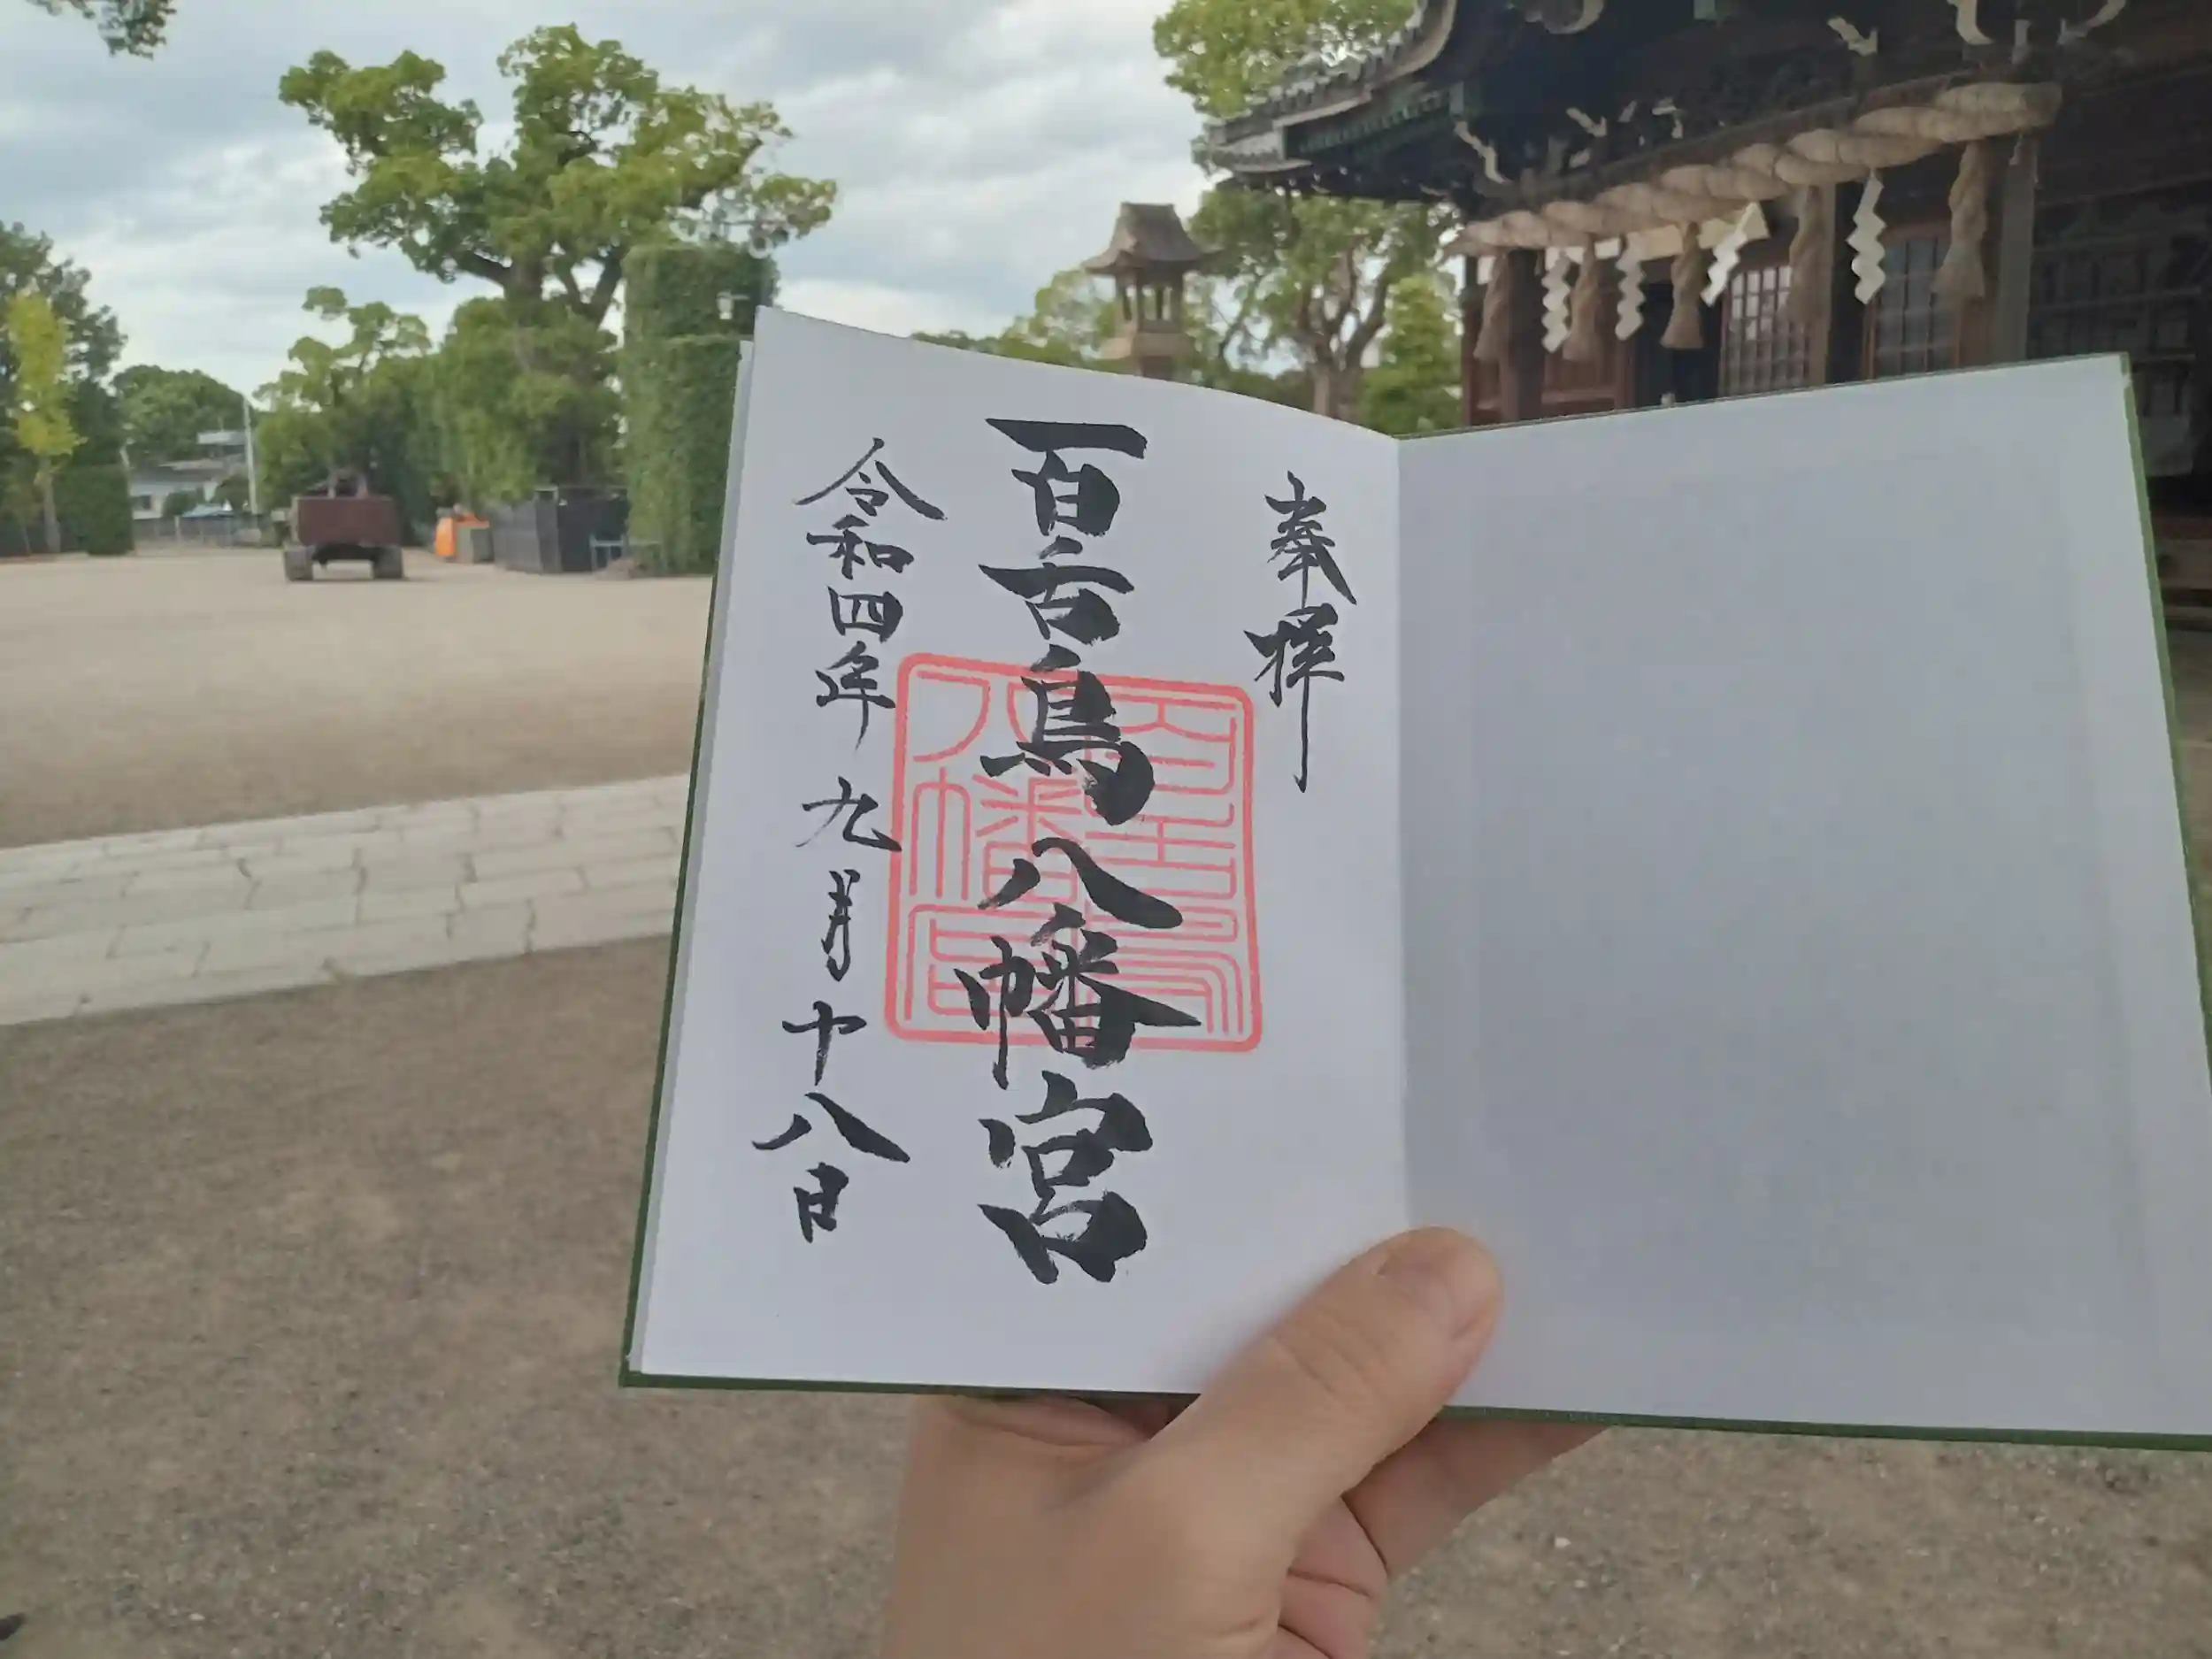 奉拝
百舌鳥八幡宮
令和四年 九月十八日
百舌鳥
八幡宮